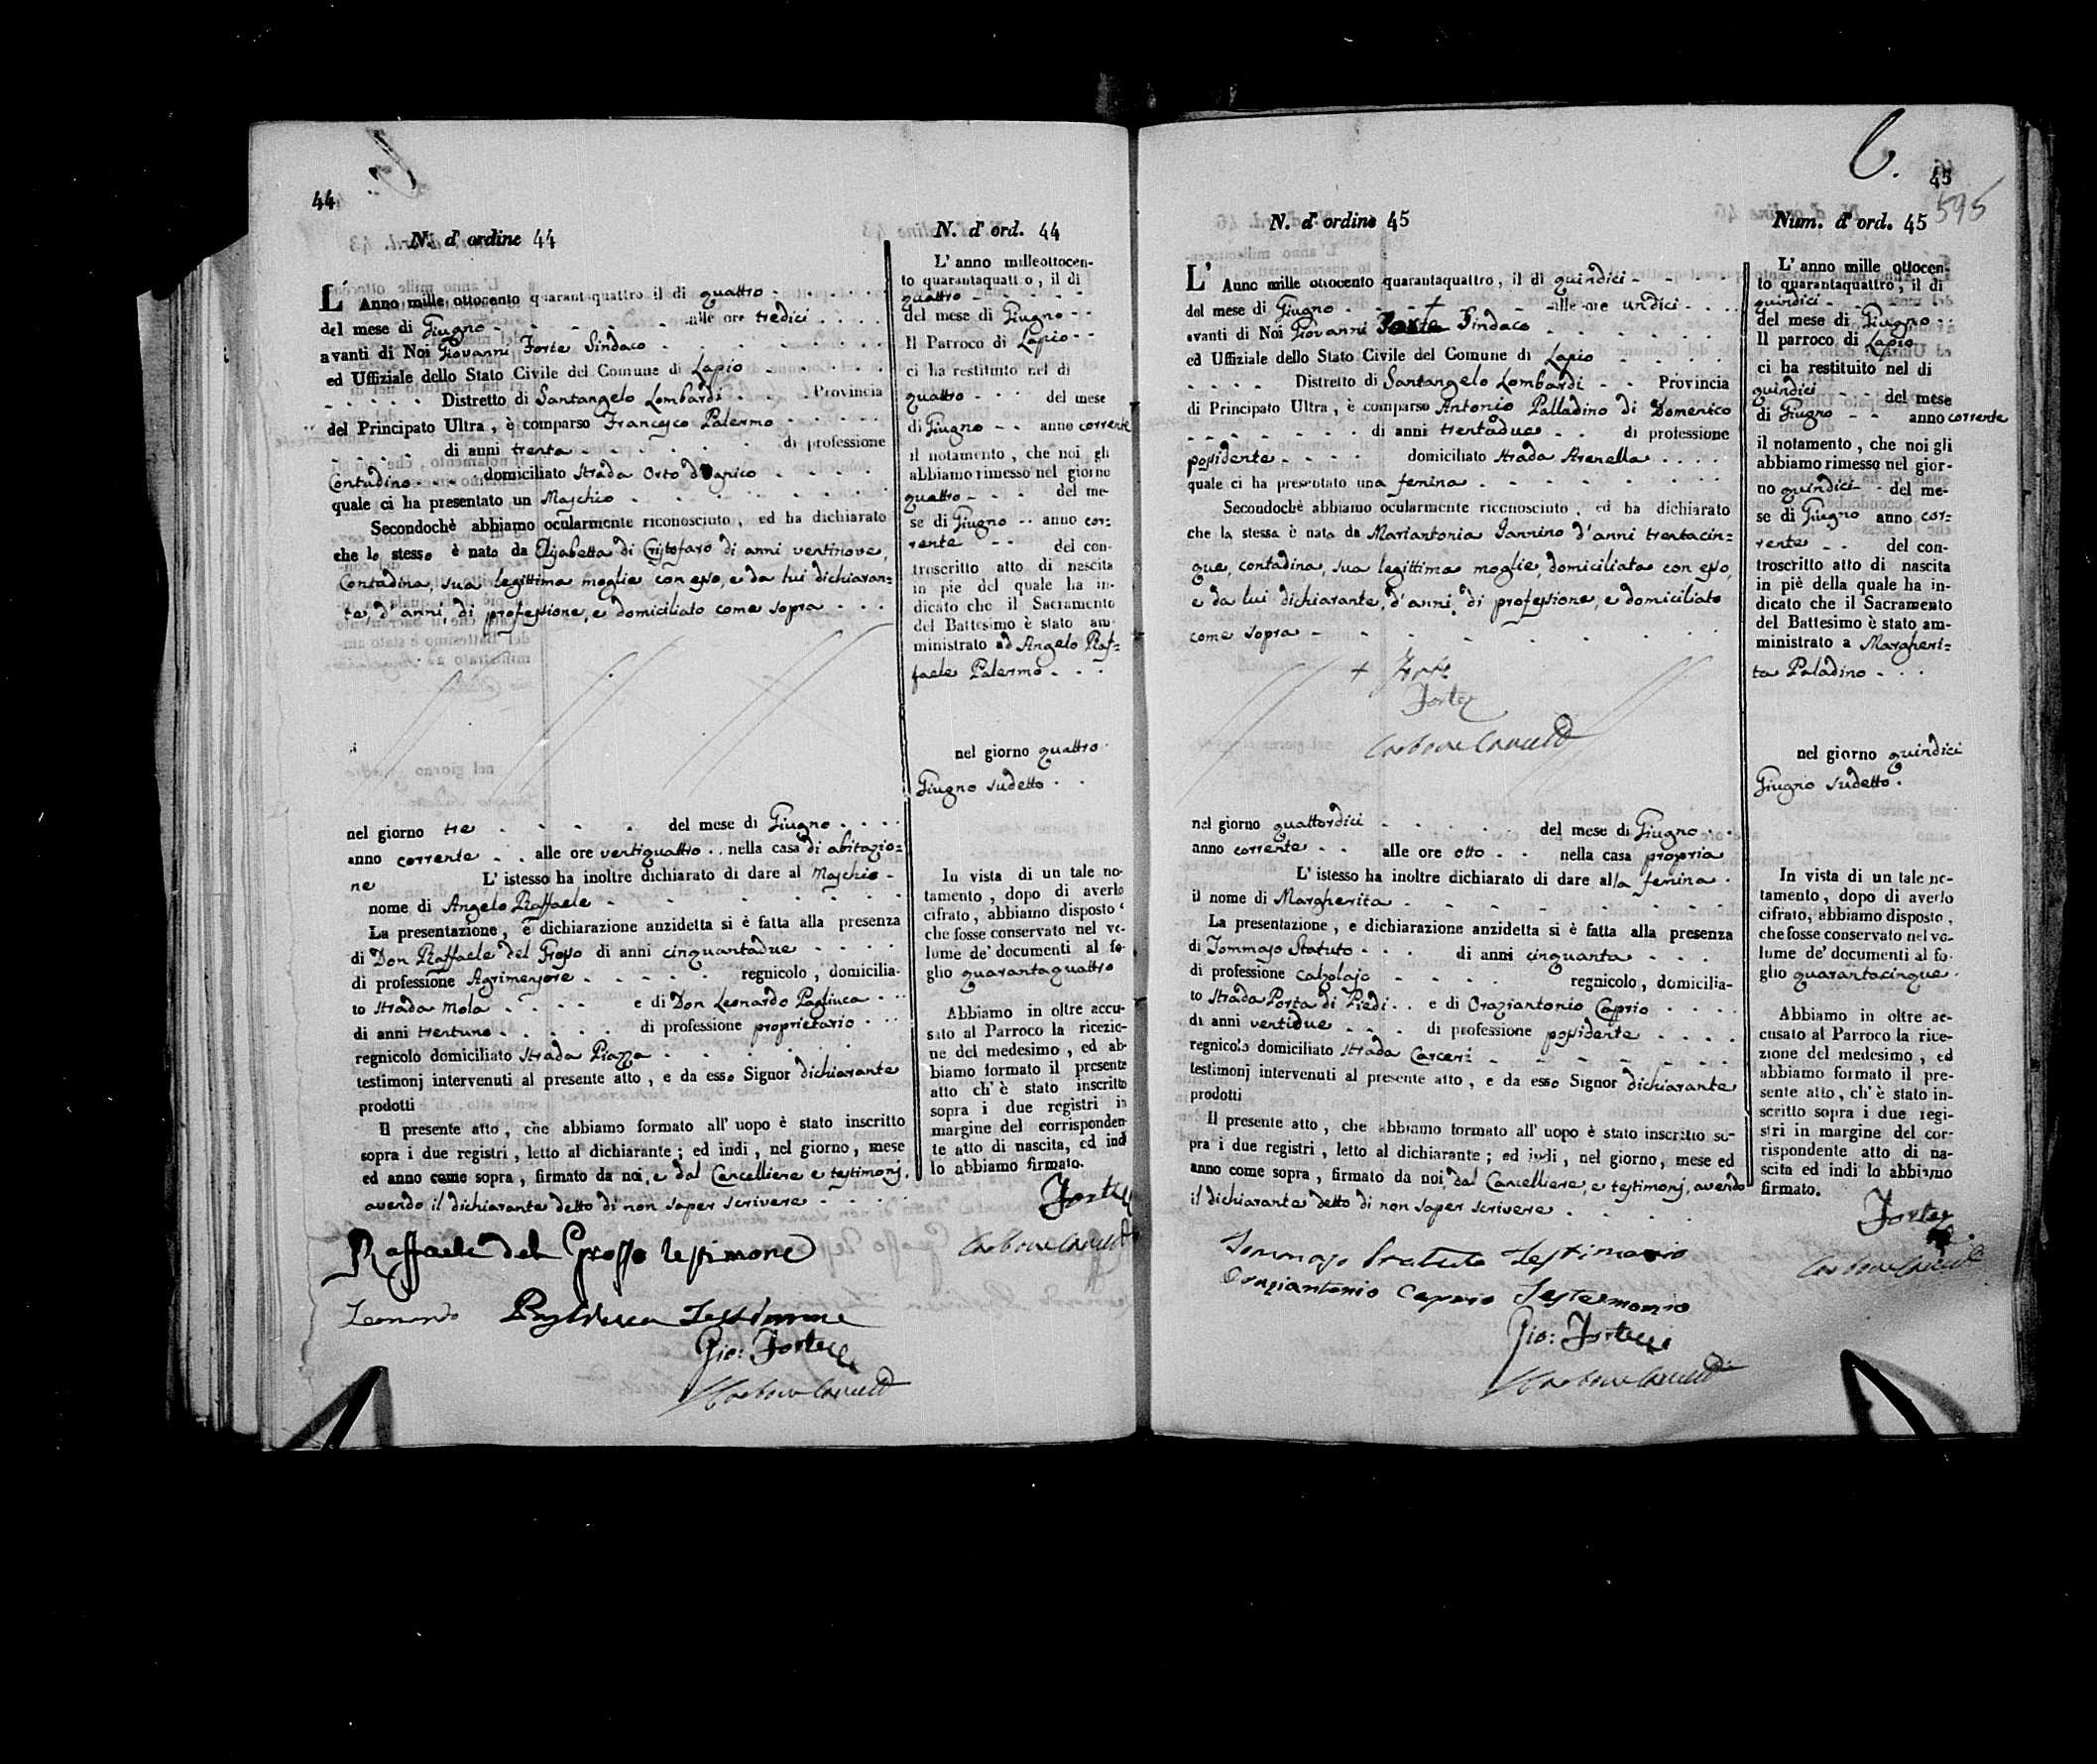 44
N. d' ordine 44
L' Anno mille ottocento quarantaquattro il di quattro
del mese di Giugno alle ore tredici
avanti di Noi Giovanni Forte Sindaco
ed Uffiziale dello Stato Civile del Comune di Lapio
Distretto di Santangelo Lombardi Provincia
del Principato Ultra, è comparso Francesco Palermo
di anni trenta di professione
Contadino domiciliato Strada Orto
quale ci ha presentato un Maschio
Secondochè abbiamo ocularmente riconosciuto, ed ha dichiarato
che lo stesso è nato da Elisabetta di Cristofaro di anni ventinove,
Contadina, sua legittima moglie con esso, e da lui dichiaran=
te, d'anni, di professione, e domiciliato come sopra
nel giorno tre del mese di Giugno
anno corrente alle ore ventiquattro nella casa di abitazio=
ne L' istesso ha inoltre dichiarato di dare al Maschio
nome di Angelo Raffaele
La presentazione, e dichiarazione anzidetta si è fatta alla presenza
di Don Raffaele del Grosso di anni cinquantadue
di professione Agrimensore regnicolo, domicilia-
to Strada Mola e di Don Leonardo Pagliuca
di anni trentuno di professione proprietario
regnicolo domiciliato Strada Piazza
testimonj intervenuti al presente atto, e da esso Signor dichiarante
prodotti
Il presente atto, che abbiamo formato all' uopo è stato inscritto
sopra i due registri, letto al dichiarante; ed indi, nel giorno, mese
ed anno come sopra, firmato da noi, e dal Cancelliere e testimonj,
avendo il dichiarante detto di non saper scrivere
Raffaele del Grosso testimone
Leonardo Pagliuca Testimone
Gio: Forte
N. d' ord. 44
L' anno milleottocen-
to quarantaquattro, il di
quattro
del mese di Giugno
Il Parroco di Lapio
ci ha restituito nel di
quattro del mese
di Giugno anno corrente
il notamento, che noi gli
abbiamo rimesso nel giorno
quattro del me-
se di Giugno anno cor=
rente del con-
troscritto atto di nascita
in pie del quale ha in-
dicato che il Sacramento
del Battesimo è stato am-
ministrato ad Angelo Raf=
faele Palermo
nel giorno quattro
Giugno sudetto
In vista di un tale no-
tamento, dopo di averlo
cifrato, abbiamo disposto
che fosse conservato nel vo-
lume de' documenti al fo-
glio quarantaquattro
Abbiamo in oltre accu-
sato al Parroco la ricezio-
ne del medesimo, ed ab-
biamo formato il presente
atto ch' è stato inscritto
sopra i due registri in
margine del corrisponden-
te atto di nascita, ed indi
lo abbiamo firmato.
Forte
45
595
N. d' ordine 45
L' Anno mille ottocento quarantaquattro, il di quindici
del mese di Giugno + alle ore undici
avanti di Noi Giovanni Forte Sindaco
ed Uffiziale dello Stato Civile del Comune di Lapio
Distretto di Santangelo Lombardi Provincia
di Principato Ultra, è comparso Antonio Palladino di Domenico
di anni trentadue di professione
possidente domiciliato Strada Arenella
quale ci ha presentato una femina
Secondochè abbiamo ocularmente riconosciuto, ed ha dichiarato
che la stessa è nata da Mariantonia Iannino d'anni trentacin=
que, contadina, sua legittima moglie, domiciliata con esso,
e da lui dichiarante, d'anni, di professione, e domiciliato
come sopra
+ Forte
Forte
nel giorno quattordici del mese di Giugno
anno corrente alle ore otto nella casa propria
L' istesso ha inoltre dichiarato di dare alla femina
il nome di Margherita
La presentazione, e dichiarazione anzidetta si è fatta alla presenza
di Tommaso Statuto di anni cinquanta
di professione calzolajo regnicolo, domicilia-
to Strada Porta di Piedi e di Oraziantonio Caprio
di anni ventidue di professione possidente
regnicolo domiciliato Strada Carceri
testimonj intervenuti al presente atto, e da esso Signor dichiarante
prodotti
Il presente atto, che abbiamo formato all' uopo è stato inscritto so-
pra i due registri, letto al dichiarante; ed indi, nel giorno, mese ed
anno come sopra, firmato da noi, dal Cancelliere, e testimonj, avendo
il dichiarante detto di non saper scrivere
Tommaso Statuto Testimonio
Oraziantonio Caprio Testemonio
Gio: Forte
Num. d' ord. 45
L' anno mille ottocen-
to quarantaquattro, il di
quindici
del mese di Giugno
Il parroco di Lapio
ci ha restituito nel di
quindici del mese
di Giugno anno corrente
il notamento, che noi gli
abbiamo rimesso nel gior-
no quindici del me-
se di Giugno anno cor=
rente del con-
troscritto atto di nascita
in piè della quale ha in-
dicato che il Sacramento
del Battesimo è stato am-
ministrato a Margheri=
ta Paladino
nel giorno quindici
Giugno sudetto
In vista di un tale no-
tamento, dopo di averlo
cifrato, abbiamo disposto,
che fosse conservato nel vo-
lume de' documenti al fo-
glio quarantacinque
Abbiamo in oltre ac-
cusato al Parroco la rice-
zione del medesimo, ed
abbiamo formato il pre-
sente atto, ch' è stato in-
scritto sopra i due regi-
stri in margine del cor-
rispondente atto di na-
scita ed indi lo abbiamo
firmato.
Forte